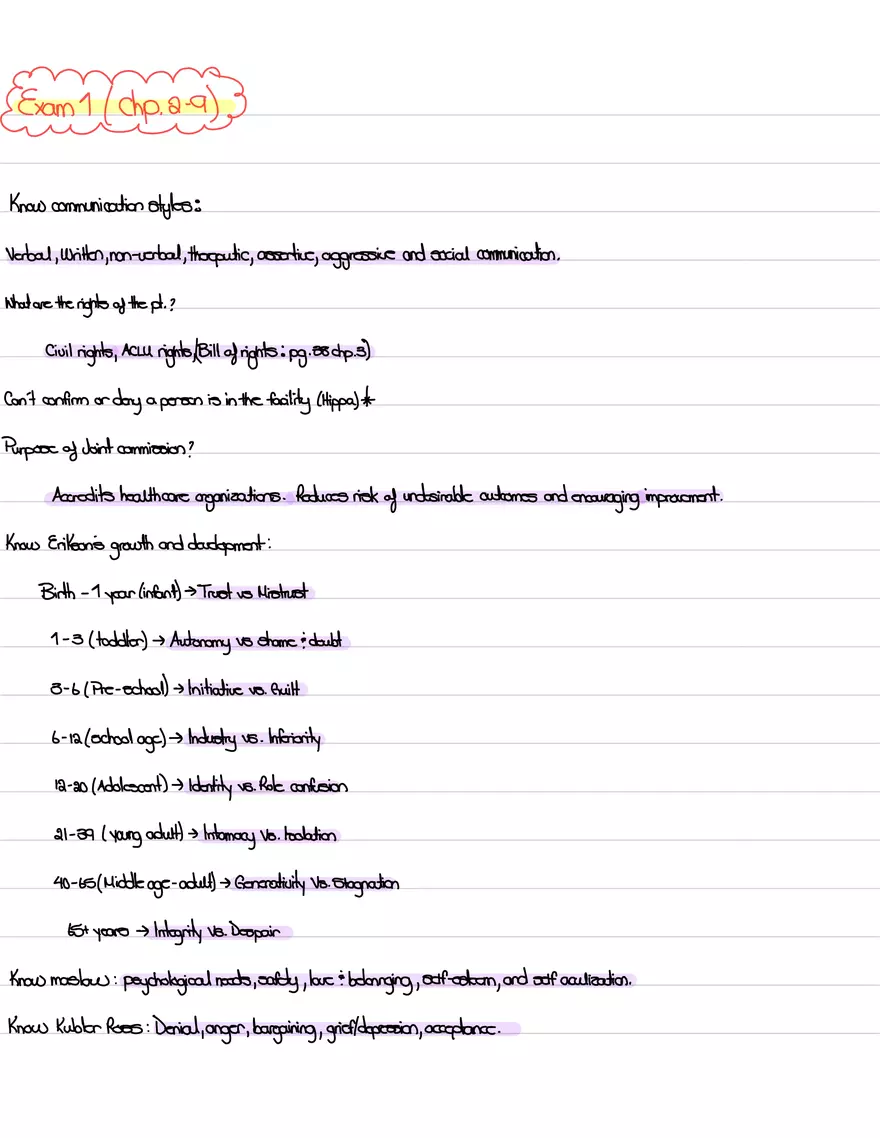 Exam 1 (chp. 2-9)
Know communication styles:
Verbal, Written, non-verbal, theraputic, assertive, aggressive and social communication.
What are the rights of the pt.?
Civil rights, ACLU rights, (Bill of rights: pg. chp.3)
Can't confirm or deny a person is in the facility (Hippa)*
Purpose of Joint commission?
Accredits healthcare organizations. Reduces risk of undesirable outcomes and encouraging improvement.
Know Erikson's growth and development:
Birth - 1 year (infant) → Trust vs Mistrust
1-3 (toddler) → Autonomy vs shame & doubt
3-6 (Pre-school) → Initiative vs. Guilt
6-12 (school age) → Industry vs. Inferiority
12-20 (Adolescent) → Identity vs. Role confusion
21-39 (young adult) → Intamacy Vs. Isolation
40-65 (Middle age-adult) → Generativity Vs. Stagnation
65+ years → Integrity Vs. Despair
Know maslow: psychological needs, safety, love & belonging, self-esteem, and self acculization.
Know Kubler Ross: Denial, anger, bargaining, grief/depression, acceptance.